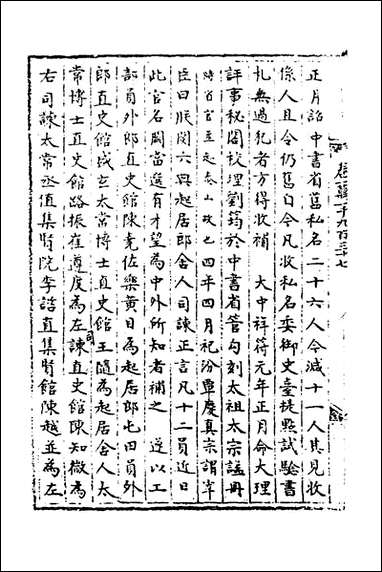 正月詔中書省舊私名二十六人今減十一人其見收
係人且令仍舊自今凡收私名委御史臺提點試驗書
札無過犯者方得收補　大中祥符元年正月命大理
評事秘閣校理劉筠於中書省管勾刻太祖太宗諡冊
時省官並走泰山故也四年四月祀汾畢慶真宗謂宰
臣曰朕閱六典起居郎舍人司諫正言凡十二員近日
此官名闕當選有才望為中外所知者補之　遂以工
部員外郎直史館陳堯佐樂黃目為起居郎屯田員外
郎直史館盛玄太常博士直史館王隨為起居舍人太
常博士直史館路振崔遵度為左司諫直史館陳知微為
右司諫太常丞直集賢院李諮直集賢館陳越並為左